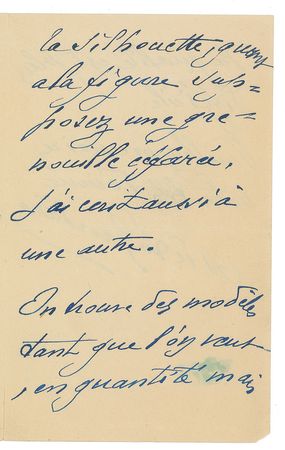 la silhouette, quant
a la figure sup=
posez une gre=
nouille effaré,
j'ai écrit aussi à
une autre.
On trouve des modèles
tant que l'on veut
, en quantité mais